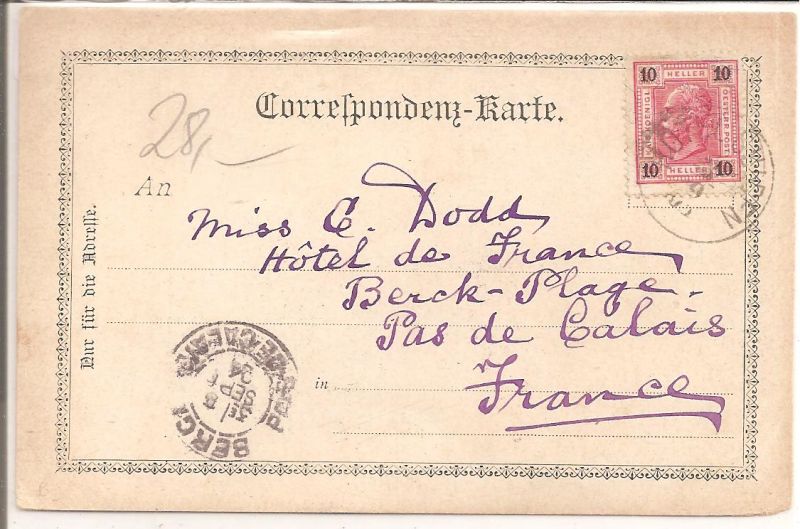 Correspondenz-Karte.
28,-
10 HELLER 10
KAIS. KOENIGL.
OESTERR. POST.
10 HELLER 10
An
Miss C. Dodd
Hôtel de France
Berck-Plage.
Pas de Calais
in France
Nur für die Adresse.
PAS-DE-CALAIS
BERCK